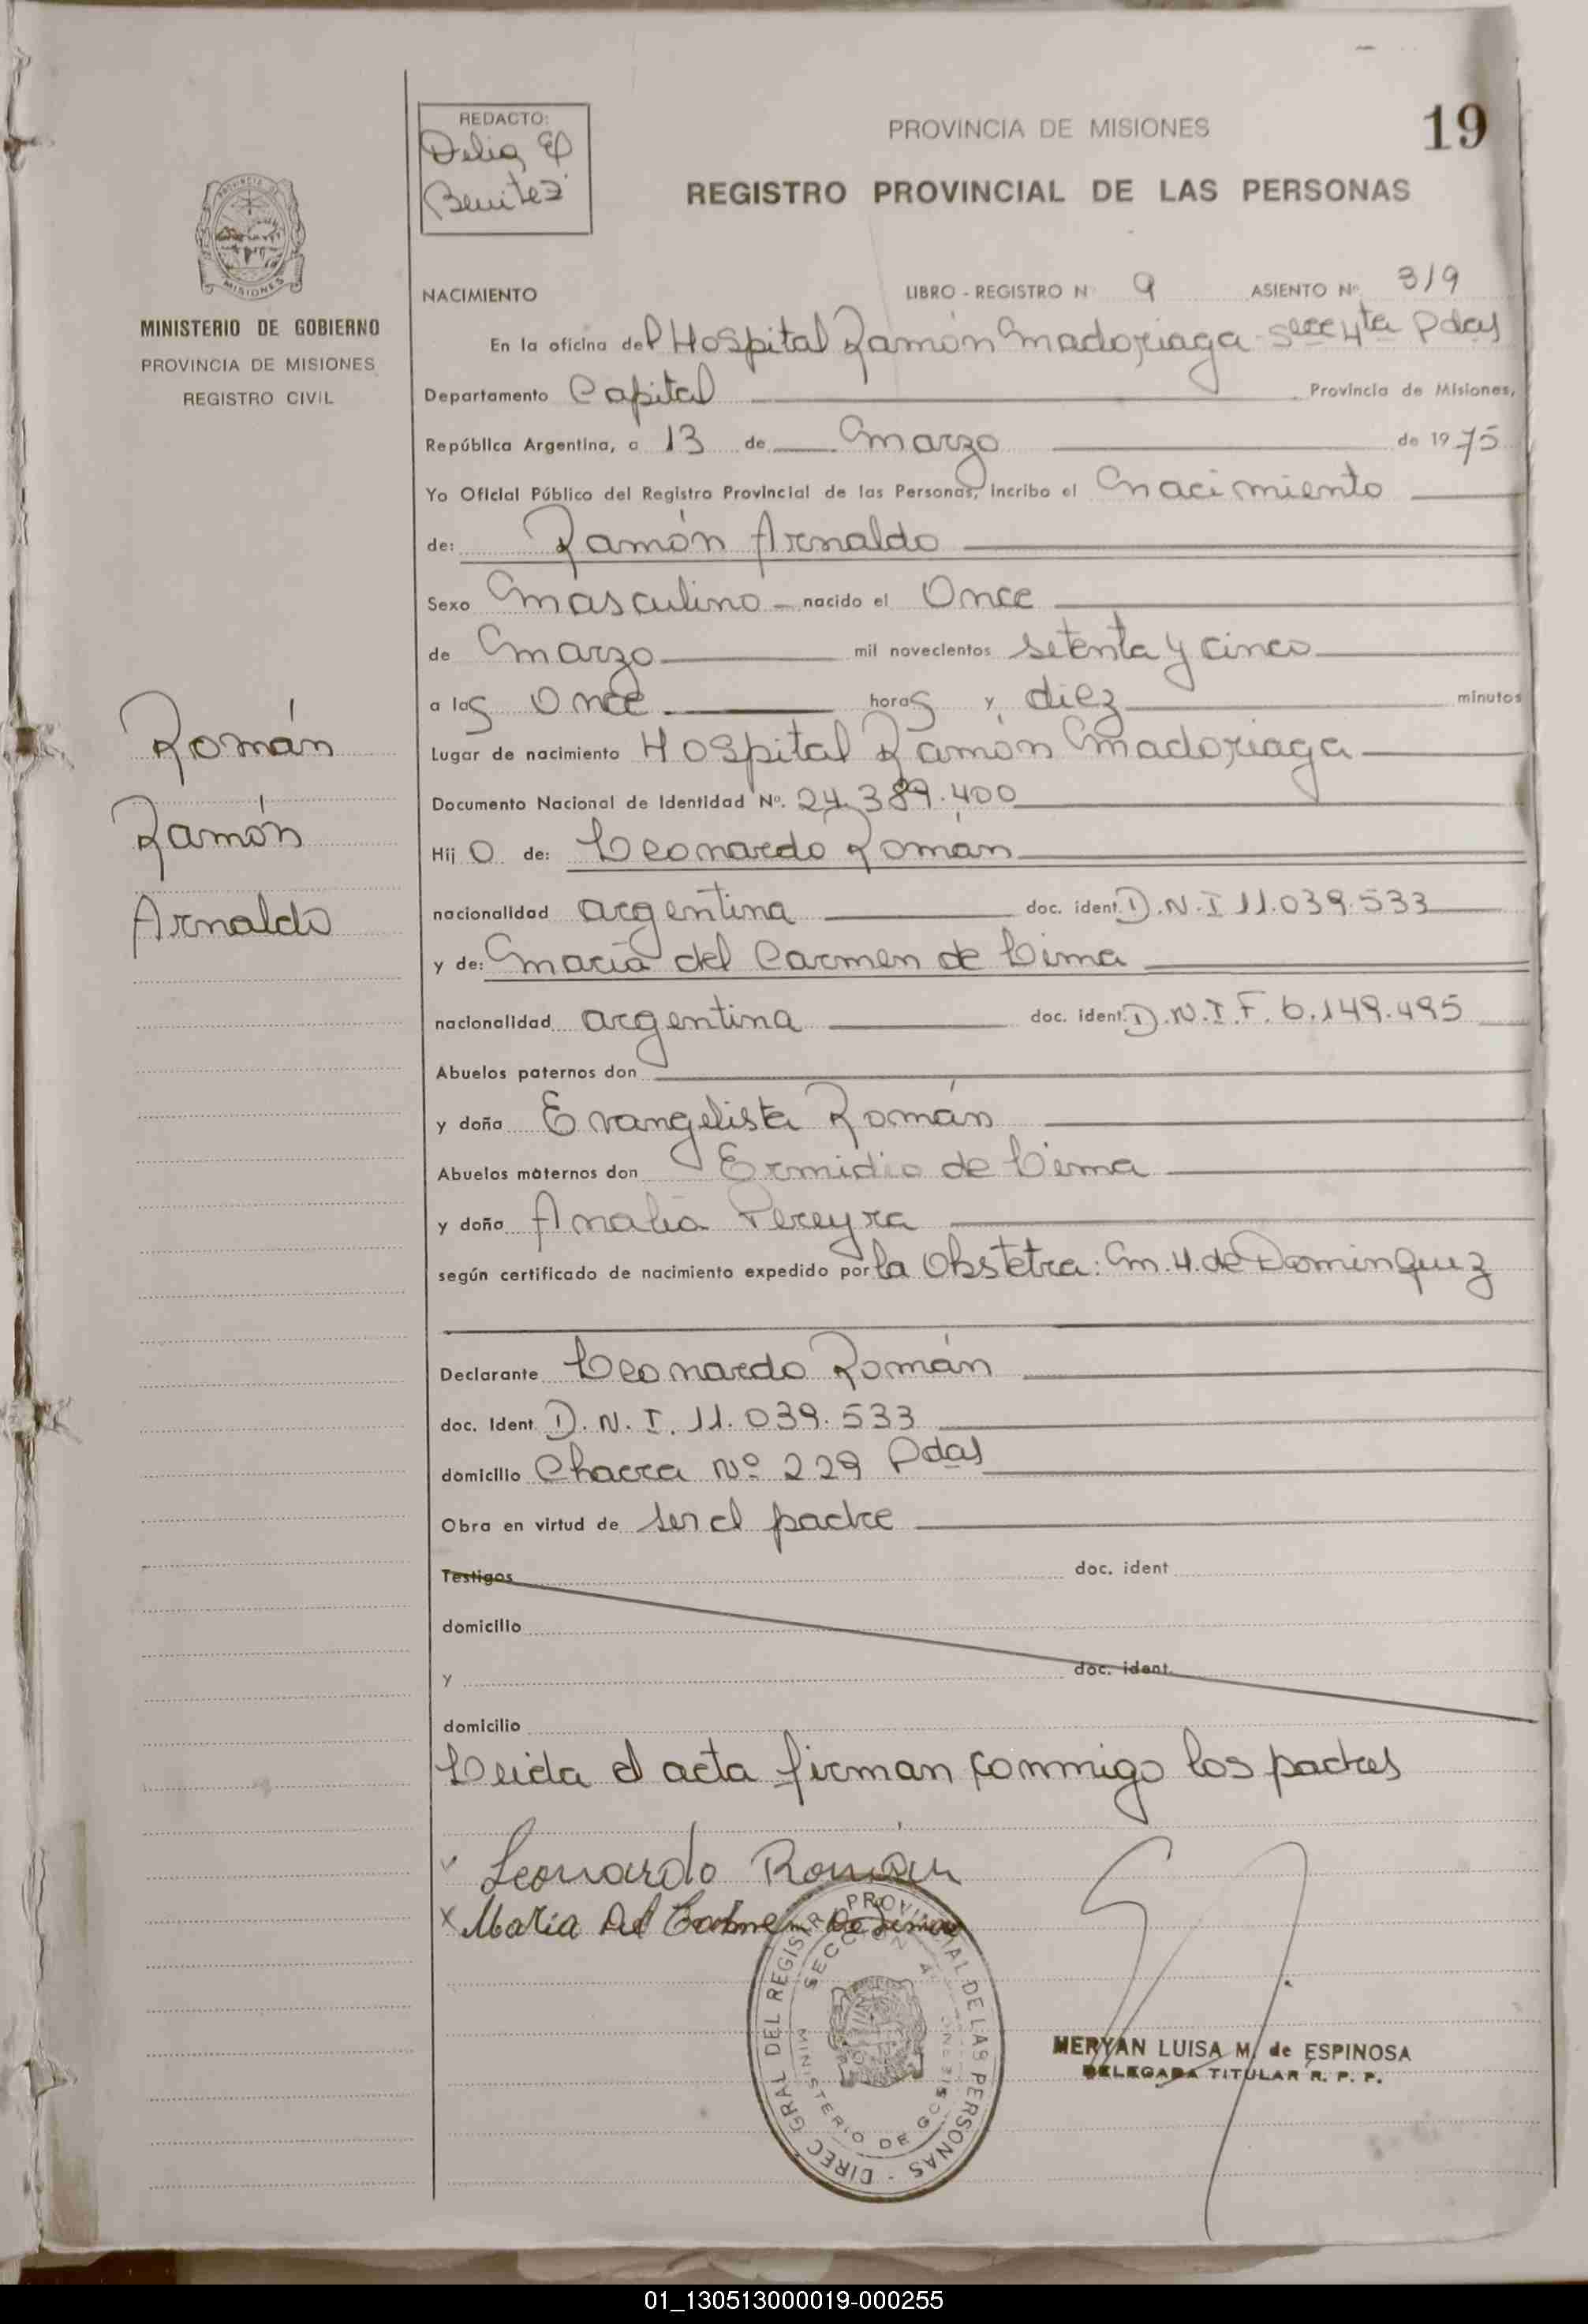 19
REDACTO:
Delia
Benitez
PROVINCIA DE MISIONES
REGISTRO PROVINCIAL DE LAS PERSONAS
MISIONES
MINISTERIO DE GOBIERNO
PROVINCIA DE MISIONES
REGISTRO CIVIL
NACIMIENTO LIBRO - REGISTRO N 9 ASIENTO Nº 319
En la oficina del Hospital Ramón Madoriaga secc 4ta Pdas
Departamento Capital Provincia de Misiones,
República Argentina, a 13 de Marzo de 1975
Yo Oficial Público del Registro Provincial de las Personas, incribo el Nacimiento
de: Ramón Arnaldo
Sexo Masculino nacido el Once
de Marzo mil novecientos setenta y cinco
a las Once horas y diez minutos
Lugar de nacimiento Hospital Ramón Madoriaga
Documento Nacional de Identidad Nº. 24.389.400
Hijo de: Leonardo Román
nacionalidad argentina doc. ident. D.N.I 11.039.533
y de: María del Carmen de Lima
nacionalidad argentina doc. ident. D.N.I.F. 6.149.495
Abuelos paternos don
y doña Evangelista Román
Abuelos maternos don Ermidio de Lima
y doña Analia Pereyra
según certificado de nacimiento expedido por la Obstetra: M.H. de Dominquez
Declarante Leonardo Román
doc. Ident. D.N.I. 11.039.533
domicilio Chacra Nº 229 Pdas
Obra en virtud de ser el padre
Testigos doc. ident
domicilio
y doc. ident.
domicilio
Leida el acta firman conmigo los padres
Leonardo Román
x Maria Del Carmen De Lima
Román
Ramón
Arnaldo
DIREC GRAL DEL REGISTR PROVINCIAL DE LAS PERSONAS
SECCION 4
MINISTERIO DE GO
MERYAN LUISA M. de ESPINOSA
DELEGADA TITULAR R. P. P.
01_130513000019-000255